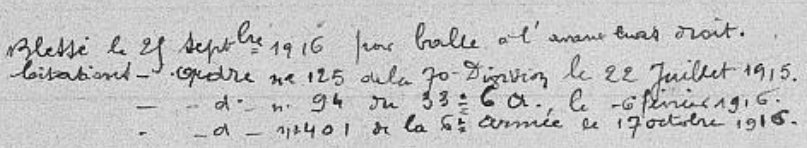 Blessé le 25 Septbre 1916 par balle à l'avant bras droit.
Citations - Ordre no 125 de la 70e Division le 22 Juillet 1915.
- d° - n° 94 du 33e C.A., le 6 février 1916.
- d° - no 401 de la 6e Armée le 17 octobre 1916.